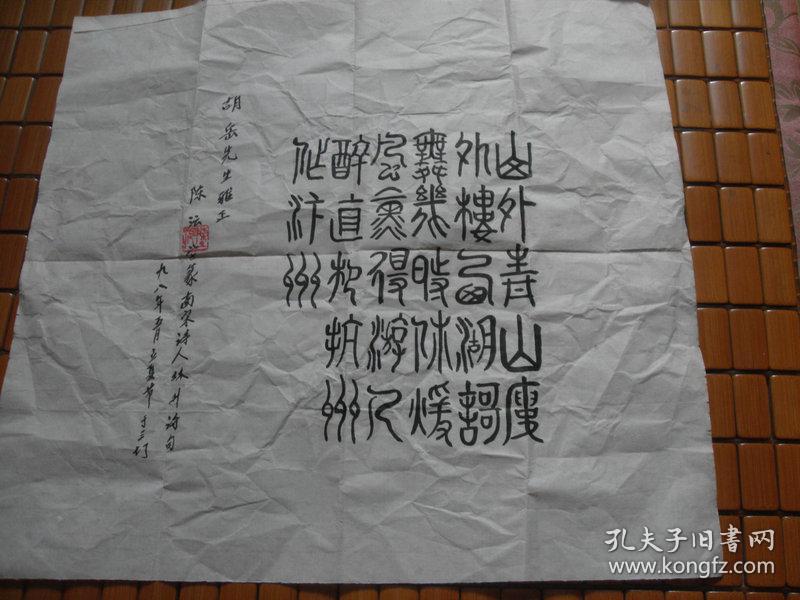 山外青山廔
外樓西湖謌
舞幾時休煖
風熏得游人
醉直把杭州
作汴州
胡岳先生雅正
陈 篆南宋诗人林升诗句
九八年 立夏节于三
孔夫子旧书网
www.kongfz.com